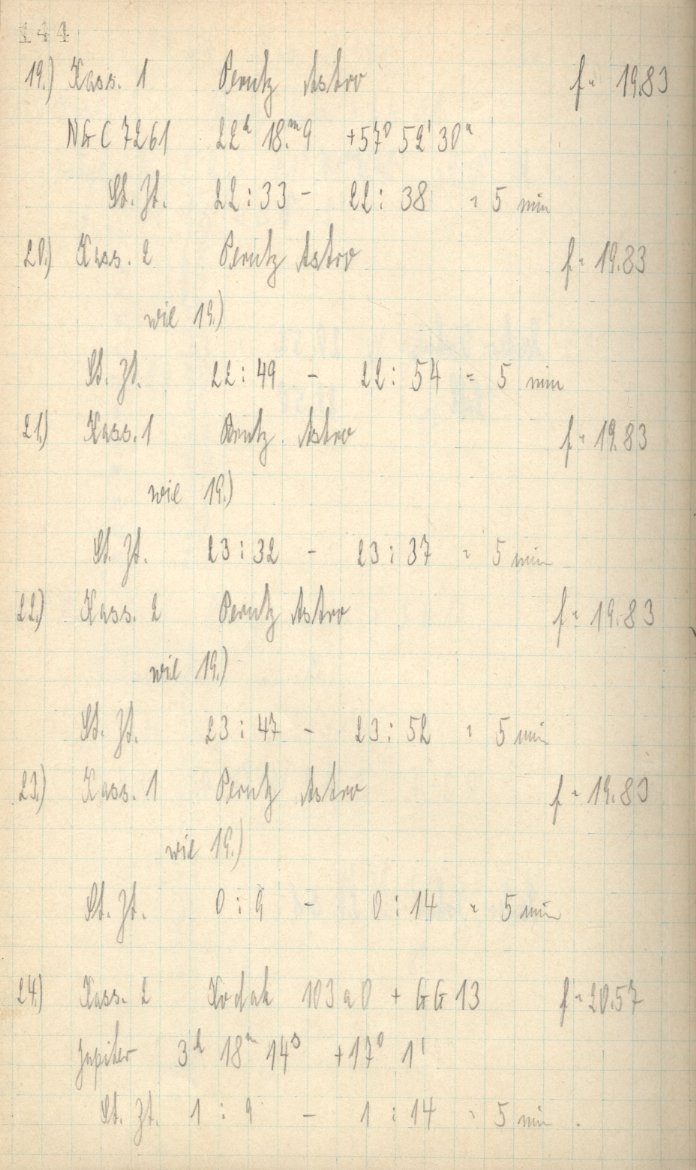 144
19.) Kass. 1 Perutz Astro f = 19.83
NGC 7261 22h 18.m9 +57° 52' 30"
St. Zt. 22:33 - 22:38 = 5 min
20.) Kass. 2 Perutz Astro f = 19.83
wie 19.)
St. Zt. 22:49 - 22:54 = 5 min
21.) Kass. 1 Perutz Astro f = 19.83
wie 19.)
St. Zt. 23:32 - 23:37 = 5 min
22.) Kass. 2 Perutz Astro f = 19.83
wie 19.)
St. Zt. 23:47 - 23:52 = 5 min
23.) Kass. 1 Perutz Astro f = 19.83
wie 19.)
St. Zt. 0:9 - 0:14 = 5 min
24.) Kass. 2 Kodak 103 a O + GG 13 f = 20.57
Jupiter 3h 18m 14s +17° 1'
St. Zt. 1:9 - 1:14 = 5 min.